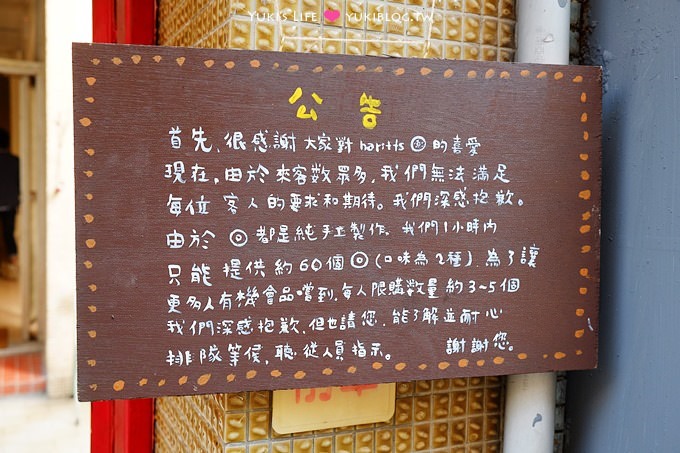 YUKI'S LIFE ♥ YUKIBLOG.TW
公告
首先,很感謝大家對haritts◎的喜愛
現在,由於來客數眾多,我們無法滿足
每位客人的要求和期待。我們深感抱歉。
由於◎都是純手工製作.我們1小時內
只能提供約60個◎(口味為2種).為了讓
更多人有機會品嚐到,每人限購數量約3~5個
我們深感抱歉,但也請您,能了解並耐心
排隊等候,聽從人員指示。 謝謝您。